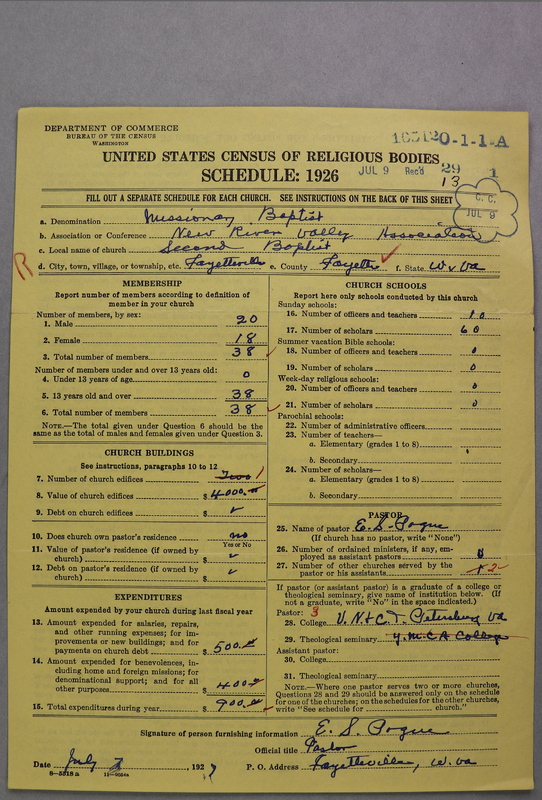 DEPARTMENT OF COMMERCE
BUREAU OF THE CENSUS
WASHINGTON
165120-1-1-A
UNITED STATES CENSUS OF RELIGIOUS BODIES
SCHEDULE: 1926
JUL 9 Rec'd 29 1
13
FILL OUT A SEPARATE SCHEDULE FOR EACH CHURCH. SEE INSTRUCTIONS ON THE BACK OF THIS SHEET
C. C.
JUL 9
a. Denomination Missionary Baptist
b. Association or Conference New River Valley Association
c. Local name of church Second Baptist
d. City, town, village, or township, etc. Fayetteville e. County Fayette f. State W Va
R
MEMBERSHIP
Report number of members according to definition of member in your church
Number of members, by sex:
1. Male 20
2. Female 18
3. Total number of members 38
Number of members under and over 13 years old:
4. Under 13 years of age 0
5. 13 years old and over 38
6. Total number of members 38
NOTE.—The total given under Question 6 should be
same as the total of males and females given under Question 3.
CHURCH BUILDINGS
See instructions, paragraphs 10 to 12
7. Number of church edifices Two 1
8. Value of church edifices $4000.00
9. Debt on church edifices $ ✓
10. Does church own pastor's residence? no
Yes or No
11. Value of pastor's residence (if owned by
church) $ ✓
12. Debt on pastor's residence (if owned by
church) $ ✓
EXPENDITURES
Amount expended by your church during last fiscal year
13. Amount expended for salaries, repairs,
and other running expenses; for im-
provements or new buildings; and for
payments on church debt $500.00
14. Amount expended for benevolences, in-
cluding home and foreign missions; for
denominational support; and for all
other purposes $400.00
15. Total expenditures during year $900.00
CHURCH SCHOOLS
Report here only schools conducted by this church
Sunday schools:
16. Number of officers and teachers 10
17. Number of scholars 60
Summer vacation Bible schools:
18. Number of officers and teachers 0
19. Number of scholars 0
Week-day religious schools:
20. Number of officers and teachers 0
21. Number of scholars 0
Parochial schools:
22. Number of administrative officers
23. Number of teachers—
a. Elementary (grades 1 to 8)
b. Secondary
24. Number of scholars—
a. Elementary (grades 1 to 8)
b. Secondary
PASTOR
25. Name of pastor E. S. Pogue
(If church has no pastor, write "None")
26. Number of ordained ministers, if any, em-
ployed as assistant pastors 0
27. Number of other churches served by the
pastor or his assistants 2
If pastor (or assistant pastor) is a graduate of a college or
theological seminary, give name of institution below. (If
not a graduate, write "No" in the space indicated.)
Pastor: 3
28. College V. N. & C. I. Petersburg Va
29. Theological seminary Y.M.C.A College
Assistant pastor:
30. College
31. Theological seminary
NOTE.—Where one pastor serves two or more churches,
Questions 28 and 29 should be answered only on the schedule
for one of the churches; on the schedules for the other churches,
write "See schedule for church."
Signature of person furnishing information E. S. Pogue
Official title Pastor
Date July 2, 1927 P. O. Address Fayetteville, W. Va
8—5518a